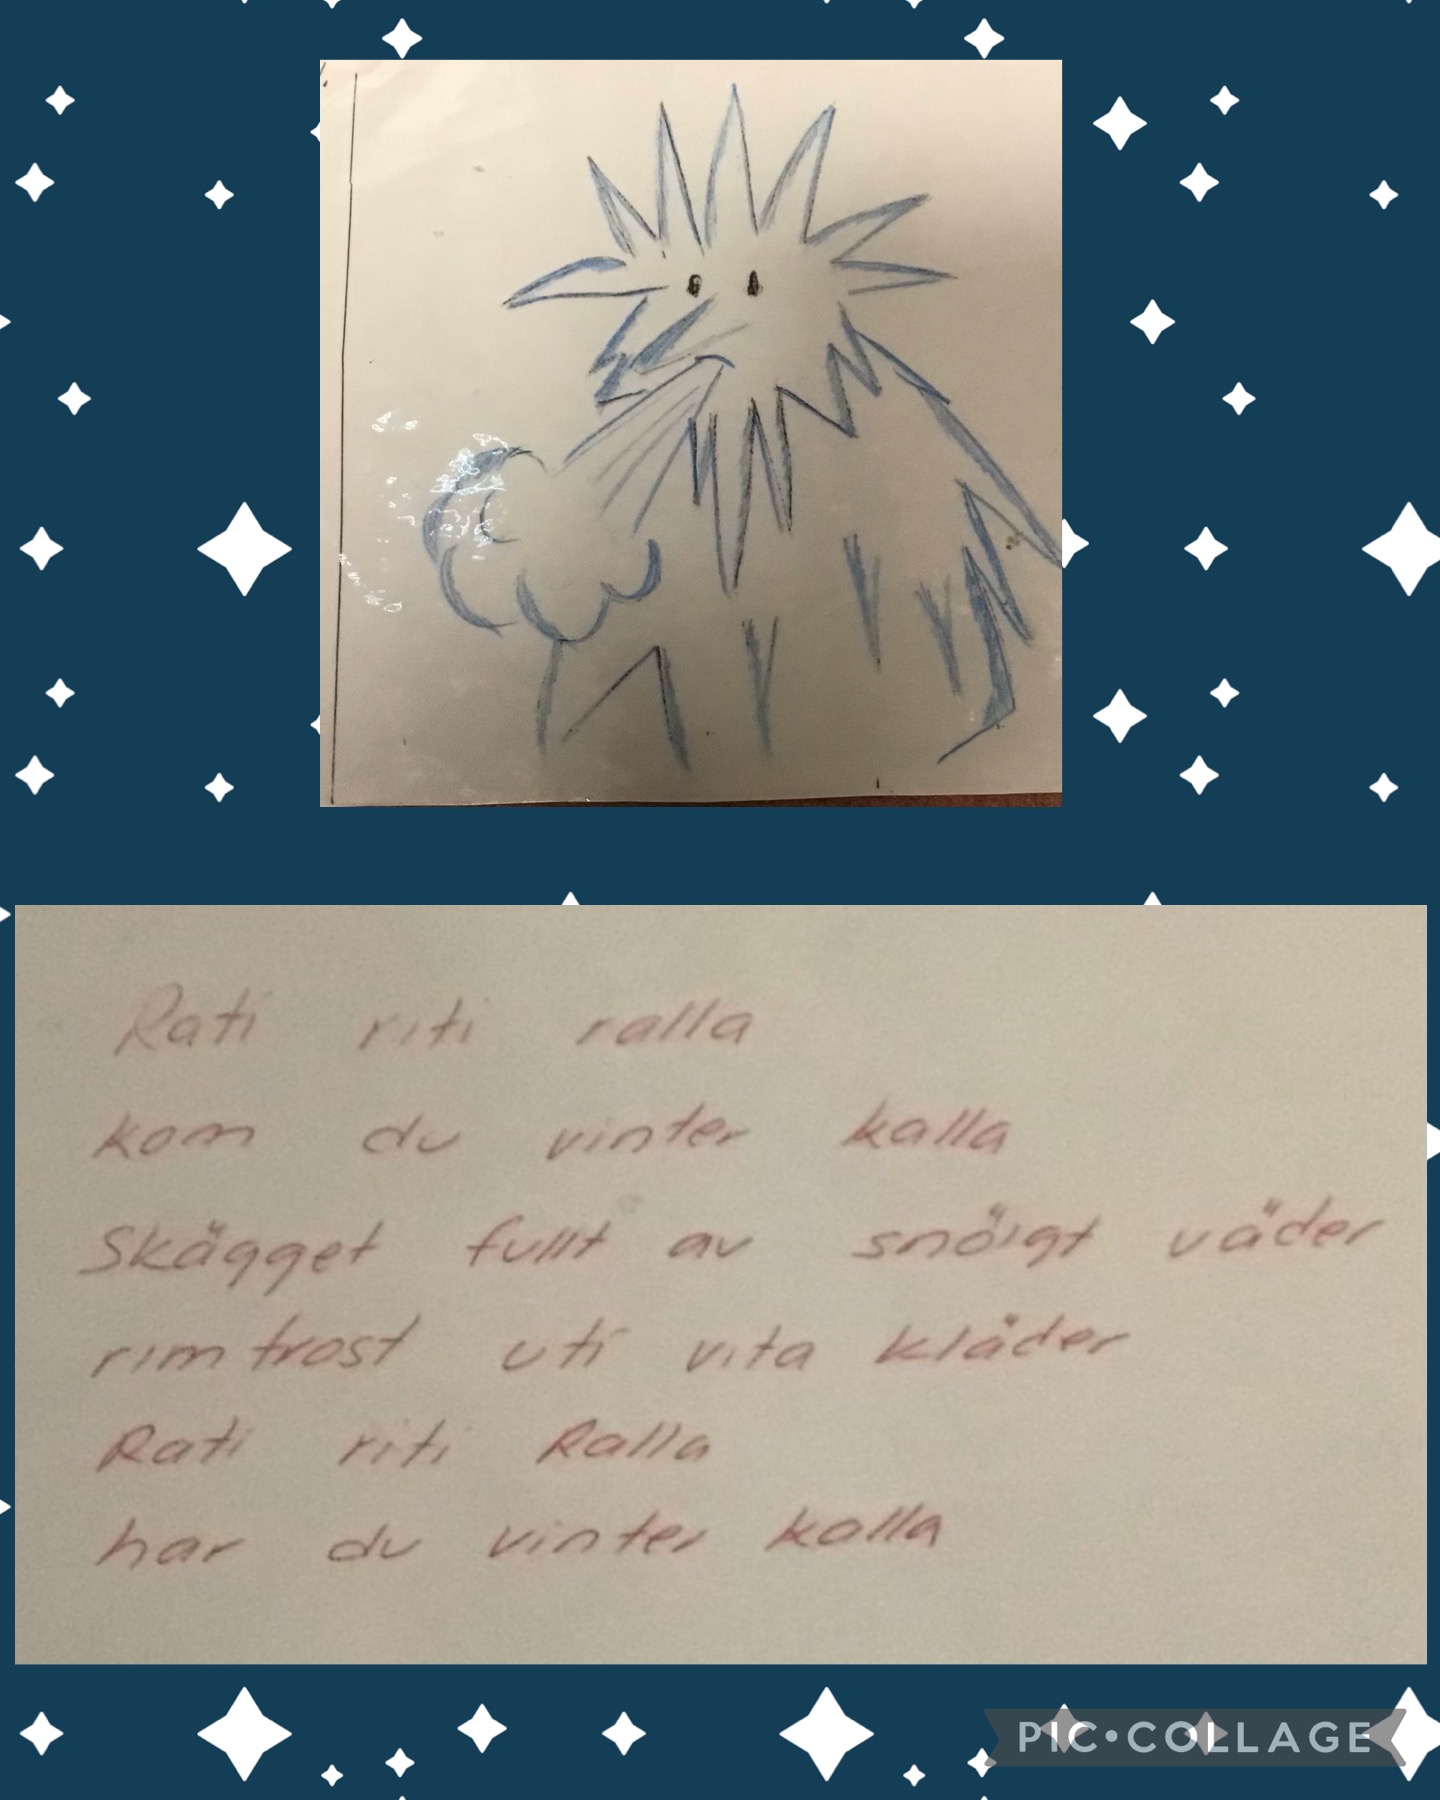 Rati riti ralla
kom du vinter kalla
Skägget fullt av snöigt väder
rimfrost uti vita kläder
Rati riti Ralla
har du vinter kalla
PIC•COLLAGE